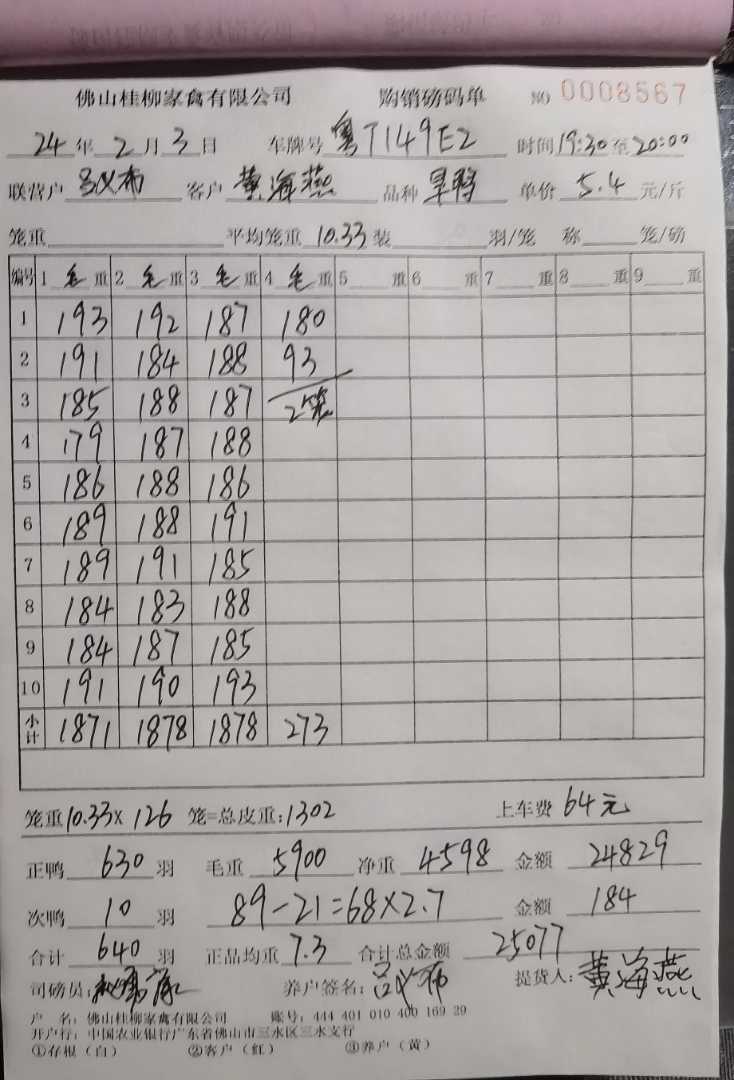 佛山桂柳家禽有限公司 购销磅码单 NO 0008567
24年2月3日 车牌号 粤T149E2 时间19:30至20:00
联营户 吕义布 客户 黄海燕 品种 单价 5.4 元/斤
笼重 平均笼重 10.33 装 羽/笼 称 笼/磅
编号 1 毛 重 2 毛 重 3 毛 重 4 毛 重 5 重 6 重 7 重 8 重 9 重
1 193 192 187 180
2 191 184 188 93
3 185 188 187 2笼
4 179 187 188
5 186 188 186
6 189 188 191
7 189 191 185
8 184 183 188
9 184 187 185
10 191 190 193
小计 1871 1878 1878 273
笼重10.33× 126 笼=总皮重:1302 上车费 64元
正鸭 630 羽 毛重 5900 净重 4598 金额 24829
次鸭 10 羽 89-21=68×2.7 金额 184
合计 640 羽 正品均重 7.3 合计总金额 25077
司磅员: 养户签名: 吕义布 提货人: 黄海燕
户 名: 佛山桂柳家禽有限公司 账号: 444 401 010 400 169 29
开户行: 中国农业银行广东省佛山市三水区三水支行
①存根(白) ②客户(红) ③养户(黄)